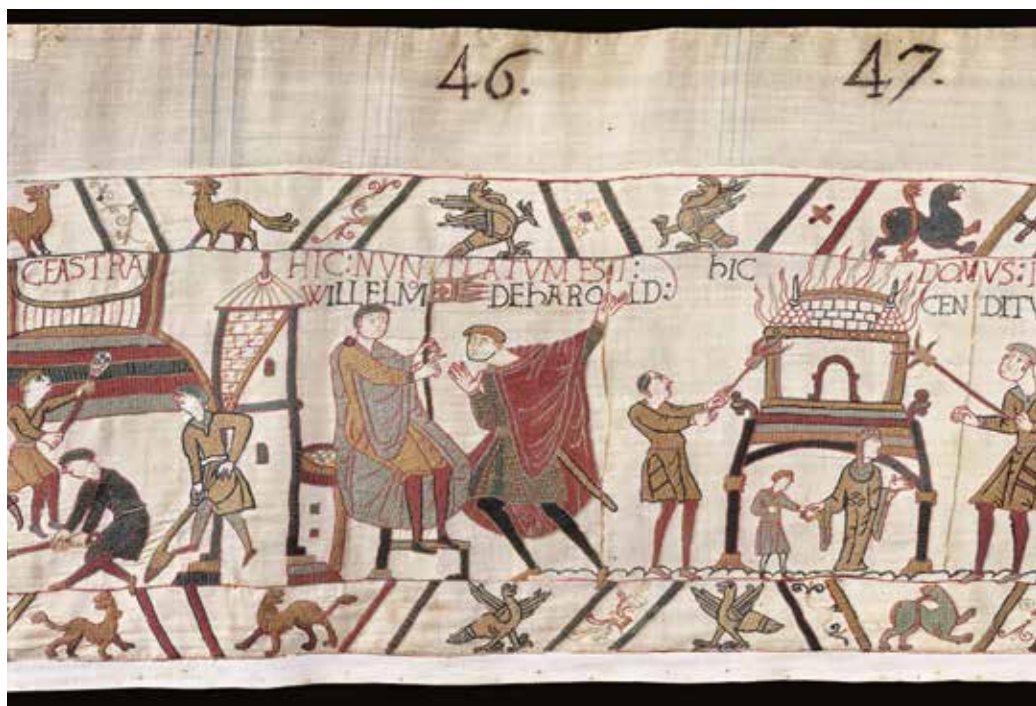 46.
47.
CEASTRA
HIC:NVNTIATVM EST:
WILLELM DEhAROLD:
hIC DOMVS:
CENDIT